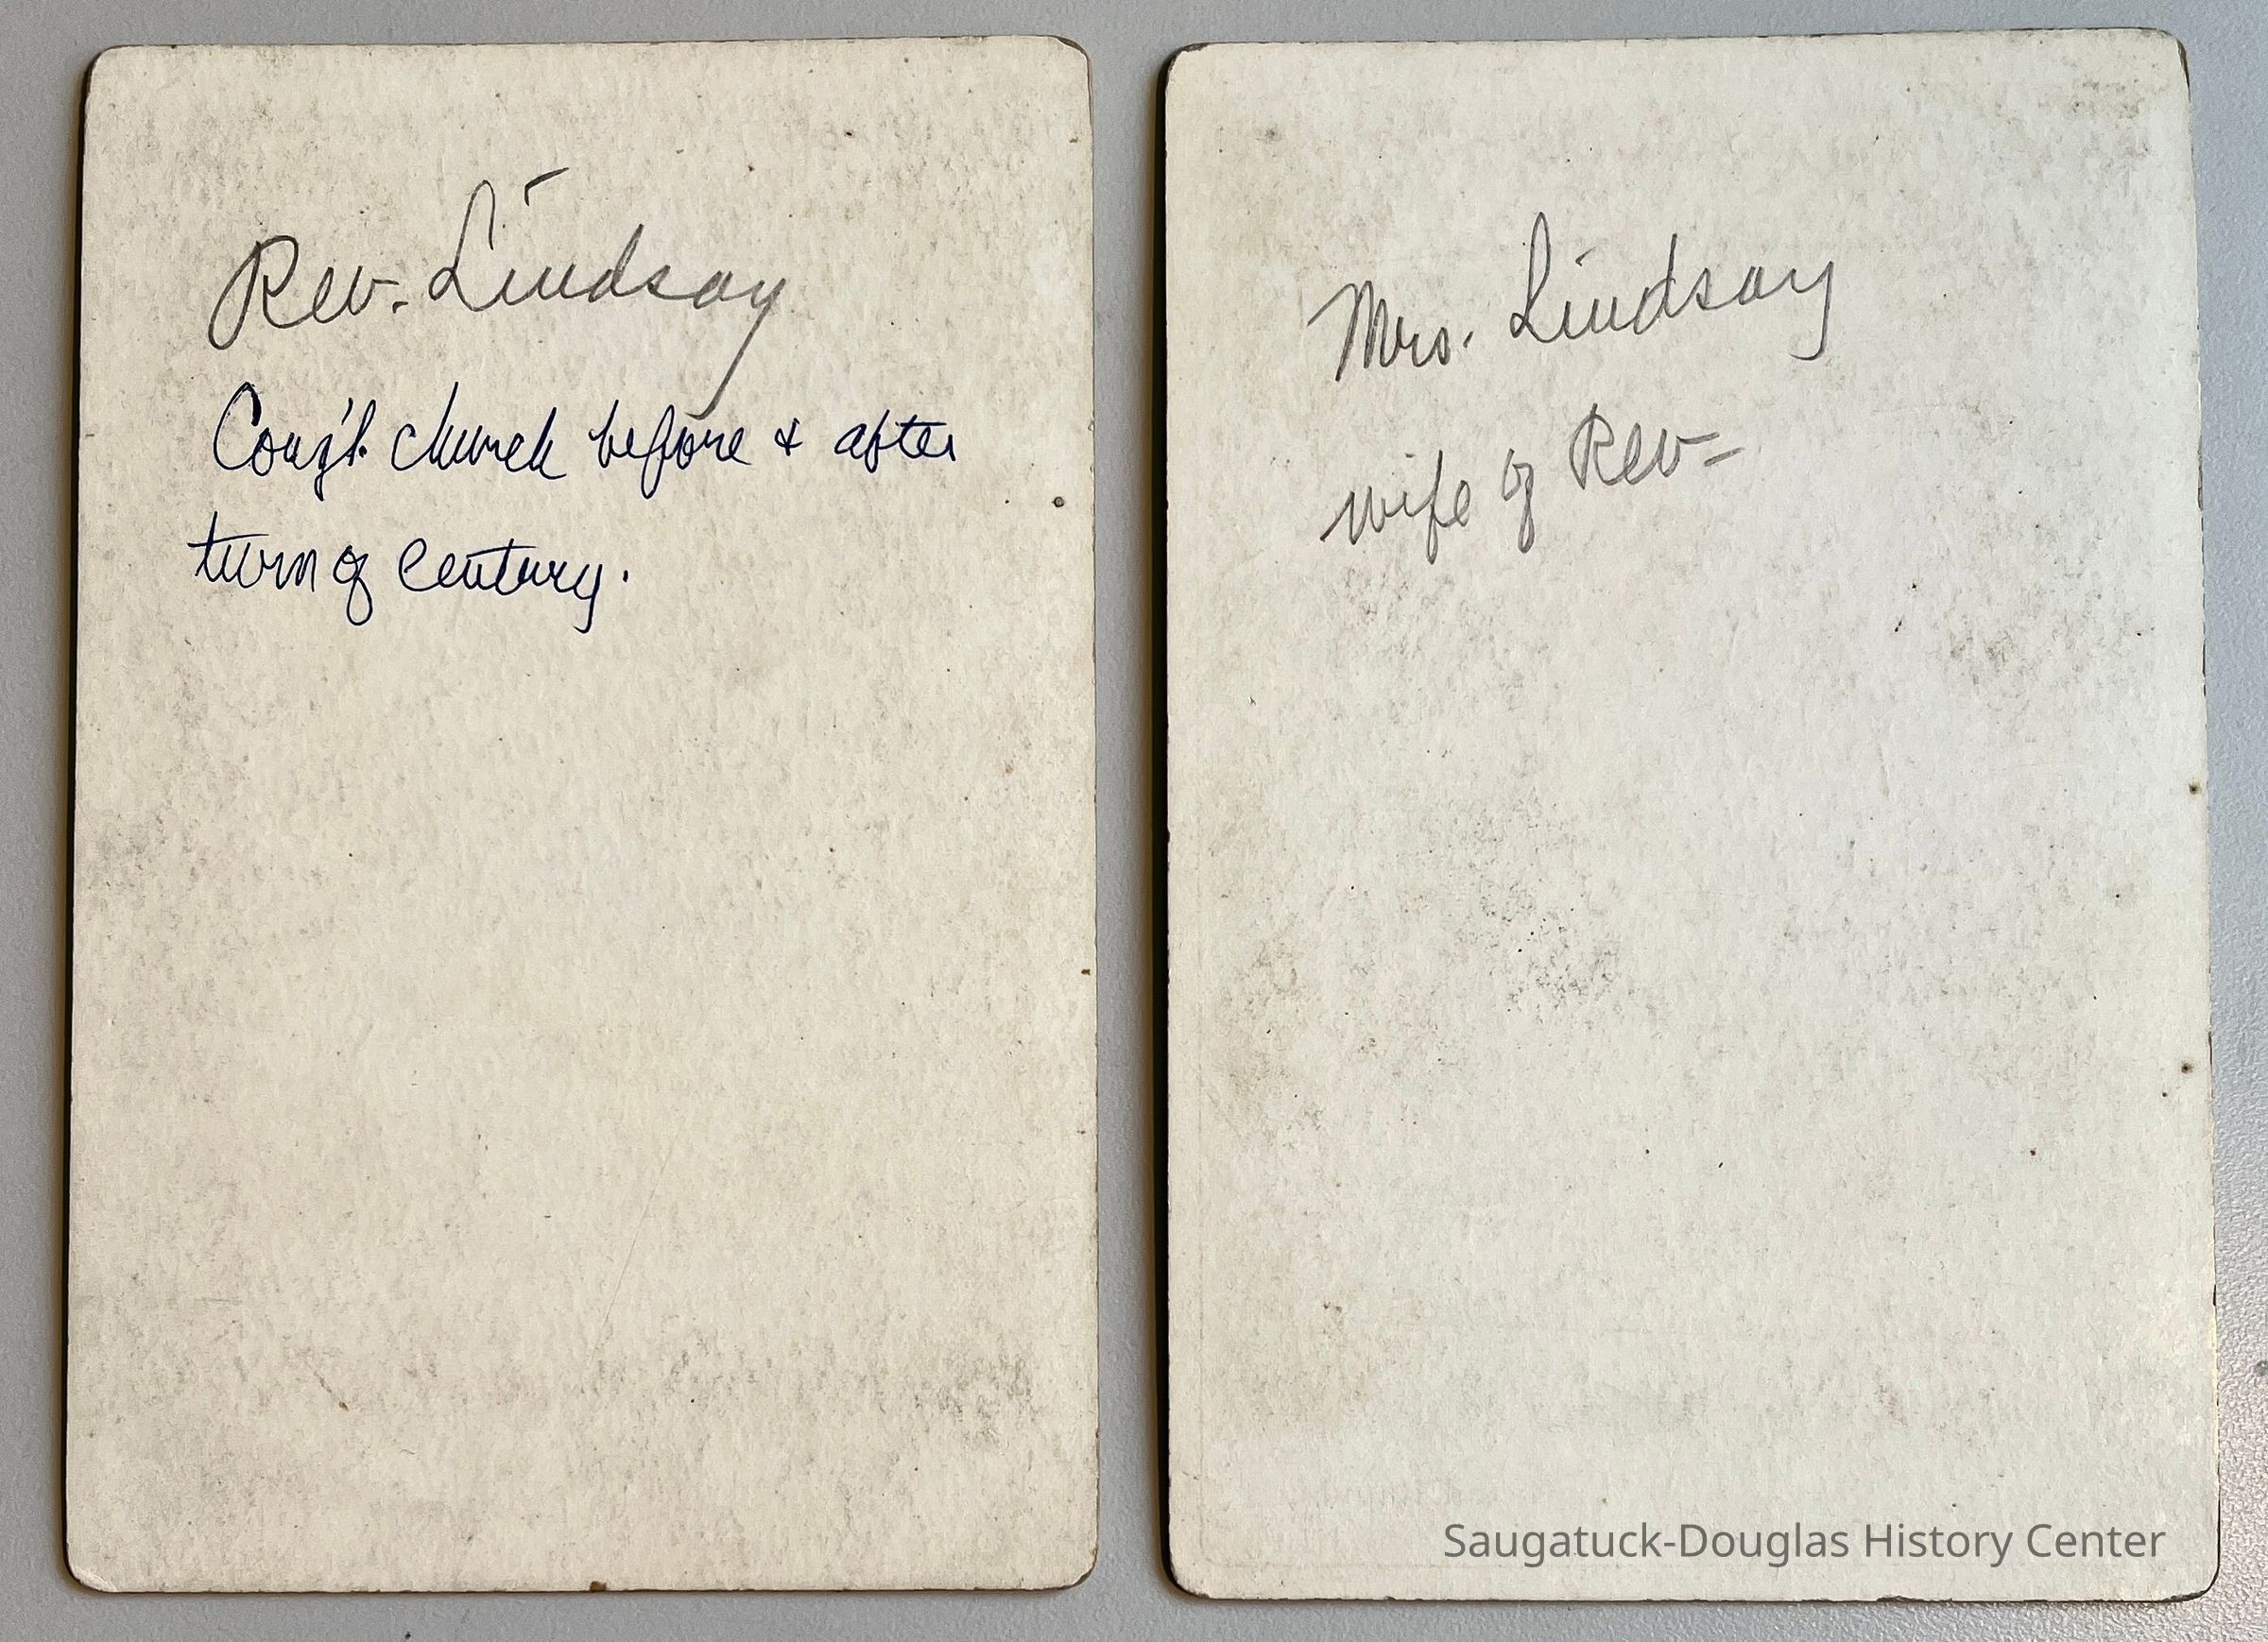 Rev. Lindsay
Cong'l. church before & after
turn of century.
Mrs. Lindsay
wife of Rev-
Saugatuck-Douglas History Center